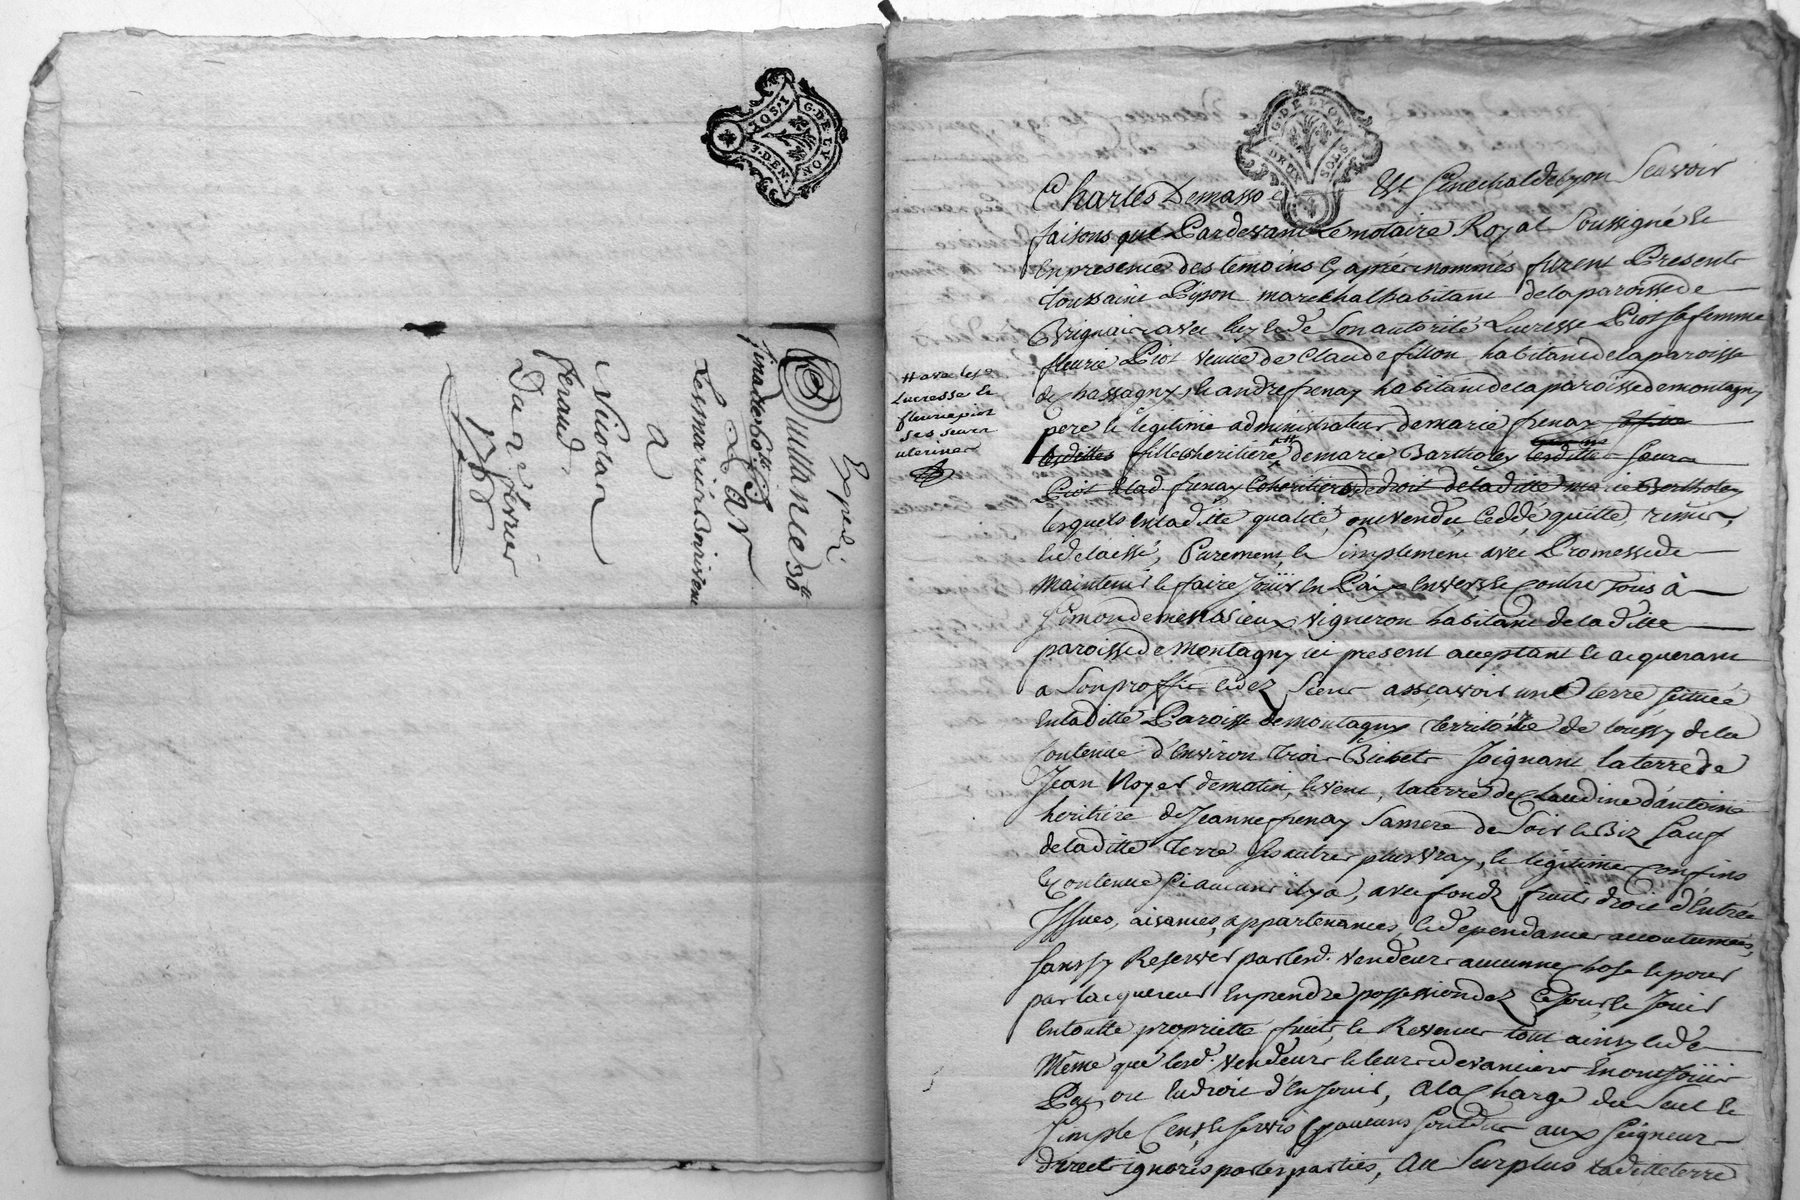 G. DE LYON
1. SOL
3. DEN.
Expedié
Quittance 30 tt
Lesmarié
a
Nicolas
feraud
Du 21e fevrier
G. DE LYON
DEUX SOLS
Charles Demasso Est Senechal de Lyon Scavoir
faisons que Pardevant Le notaire Royal Soussigné Et
En presence des temoins Cy apres nommés furent Present
Toussaint Pijson marechal habitant de la paroisse de
Brignais avec luy Et de Son autorité Lucresse Piot sa femme
fleurie Piot veuve de Claude fillon habitant de la paroisse
de chassagny, Et andre frenay habitant de la paroisse de montagny
pere Et legitime administrateur de marie frenay
filles heritieres de marie Bartholey
Piot Et lad frenay Coheritieres de droit de laditte marie Bertholey
lesquels En laditte qualité ont vendu Cedde quitté, remis,
Et delaissé, Purement, Et Simplement avec Promesse de
Maintenir Et faire Jouir En Paix Envers Et Contre Tous à
Simon demeurasieux vigneron habitant de laditte
paroisse de Montagny ici present acceptant Et acquerant
a Son proffit Et des Siens assçavoir une terre Scituée
En laditte Paroisse de montagny territoire de Coussy de la
Contenue d'Environ Trois Bichets Joignant la terre de
Jean Royer de matin, Et vent, la terre de Claudine d'antoine
heritiere de Jeanne frenay Sa mere de Soir Et Biz Sauf
de laditte terre Ses autres plus vray, Et legitimes Confins
Et Contenue Si aucuns il y a, avec fonds fruits droit d'Entrée
Issues, aisances, appartenances, Et dependances accoutumées,
Sans sy Reserver par lesd. vendeurs aucunne Chose Et pour
par l'acquereur En prendre possession dez Ce Jour, Et Jouir
En toutte proprieté fruits Et Revenus tout ainsy Et de
Même que lesd. vendeurs Et leurs devanciers En ont Joüis
Pû, ou Eu droit d'En Jouir, A la Charge du Seul Et
Simple Cens, Et Servis Si aucuns Sont dus aux Seigneurs
directs ignorés par les parties, Au Surplus laditte terre
# avec les
Lucresse Et
fleurie piot
ses seurs
uterines